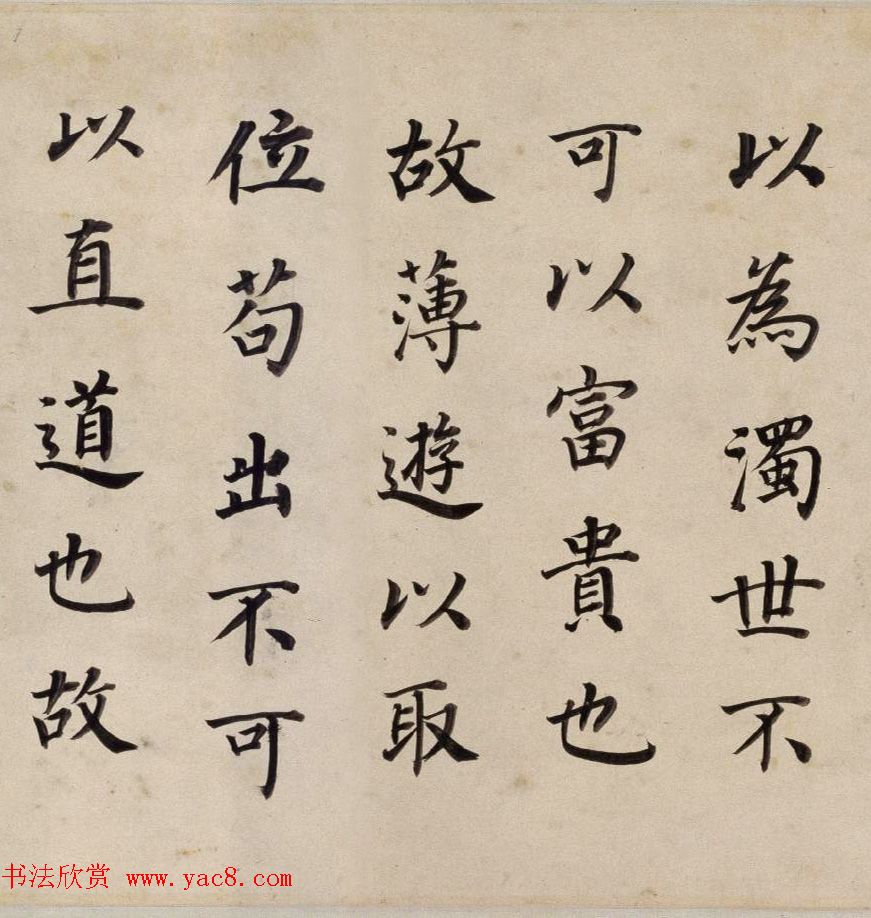 以為濁世不
可以富貴也
故薄遊以取
位苟出不可
以直道也故
书法欣赏 www.yac8.com